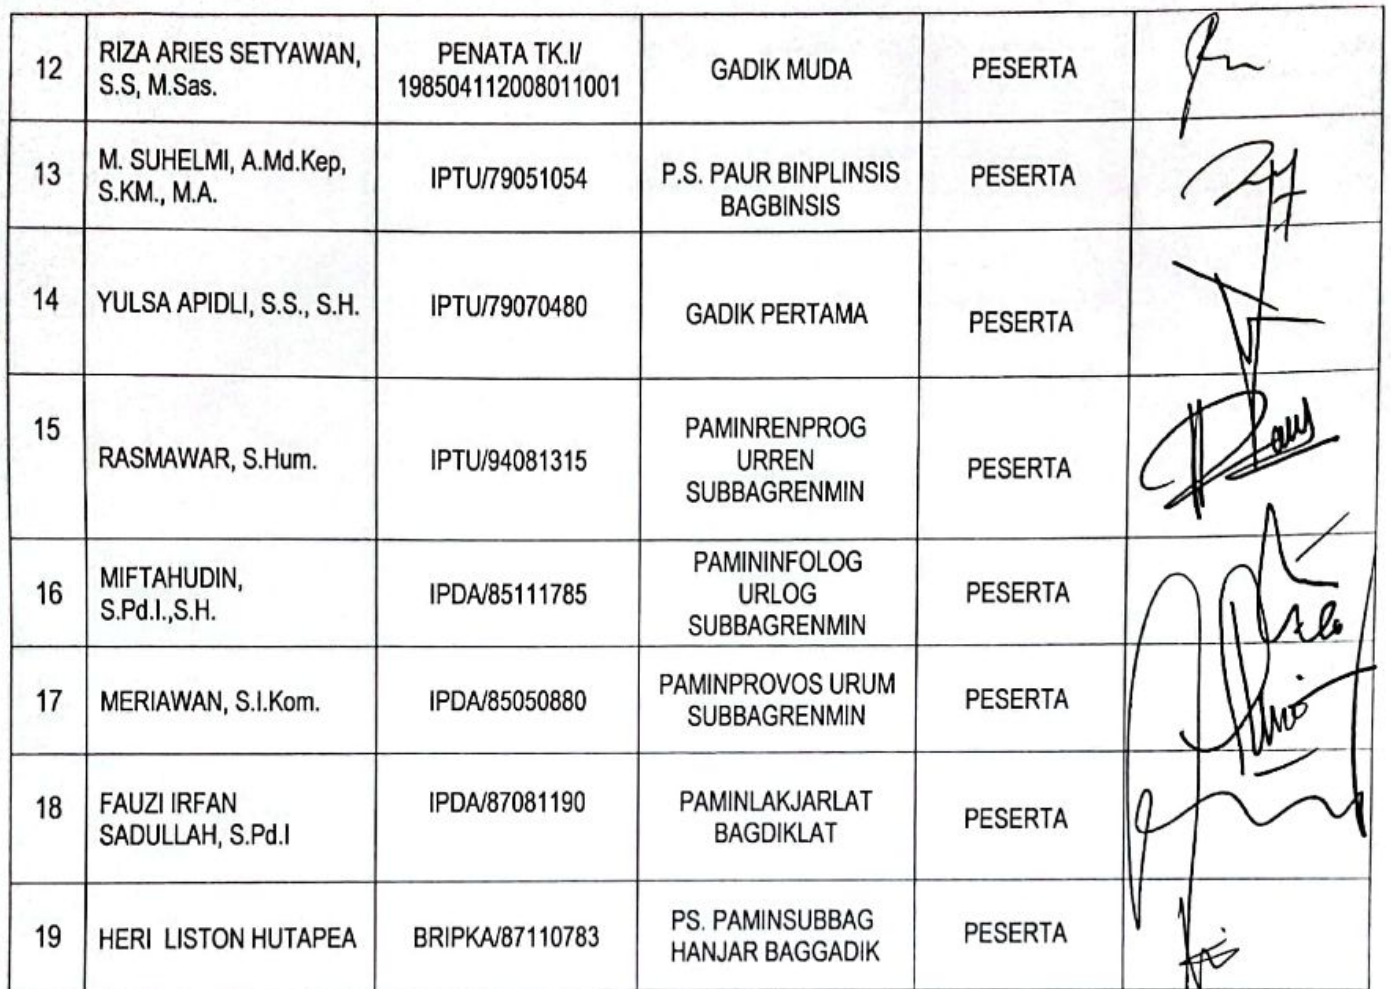 12
RIZA ARIES SETYAWAN,
S.S, M.Sas.
PENATA TK.I/
198504112008011001
GADIK MUDA
PESERTA
13
M. SUHELMI, A.Md.Kep,
S.KM., M.A.
IPTU/79051054
P.S. PAUR BINPLINSIS
BAGBINSIS
PESERTA
14
YULSA APIDLI, S.S., S.H.
IPTU/79070480
GADIK PERTAMA
PESERTA
15
RASMAWAR, S.Hum.
IPTU/94081315
PAMINRENPROG
URREN
SUBBAGRENMIN
PESERTA
16
MIFTAHUDIN,
S.Pd.I.,S.H.
IPDA/85111785
PAMININFOLOG
URLOG
SUBBAGRENMIN
PESERTA
17
MERIAWAN, S.I.Kom.
IPDA/85050880
PAMINPROVOS URUM
SUBBAGRENMIN
PESERTA
18
FAUZI IRFAN
SADULLAH, S.Pd.I
IPDA/87081190
PAMINLAKJARLAT
BAGDIKLAT
PESERTA
19
HERI LISTON HUTAPEA
BRIPKA/87110783
PS. PAMINSUBBAG
HANJAR BAGGADIK
PESERTA